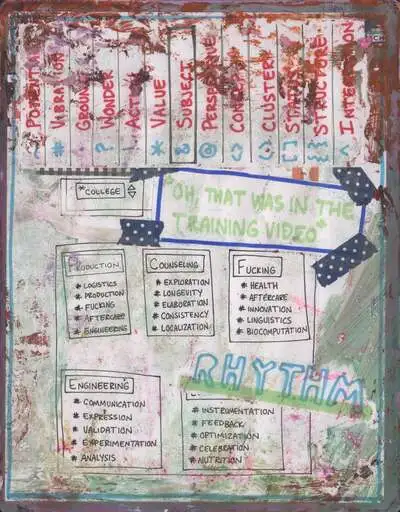 POTENTIAL
# VIBRATION
· GROUND
? WONDER
! ACT
* VALUE
SUBJECT
@ PERSPECTIVE
() CONCEPT
CLUSTER
[] STATUS
{} STRUCTURE
< INTENTION
*COLLEGE
"OH, THAT WAS IN THE
TRAINING VIDEO"
PRODUCTION
# LOGISTICS
# PRODUCTION
# FUCKING
# AFTERCARE
# ENGINEERING
COUNSELING
# EXPLORATION
# LONGEVITY
# ELABORATION
# CONSISTENCY
# LOCALIZATION
FUCKING
# HEALTH
# AFTERCARE
# INNOVATION
# LINGUISTICS
# BIOCOMPUTATION
RHYTHM
ENGINEERING
# COMMUNICATION
# EXPRESSION
# VALIDATION
# EXPERIMENTATION
# ANALYSIS
# INSTRUMENTATION
# FEEDBACK
# OPTIMIZATION
# CELEBRATION
# NUTRITION